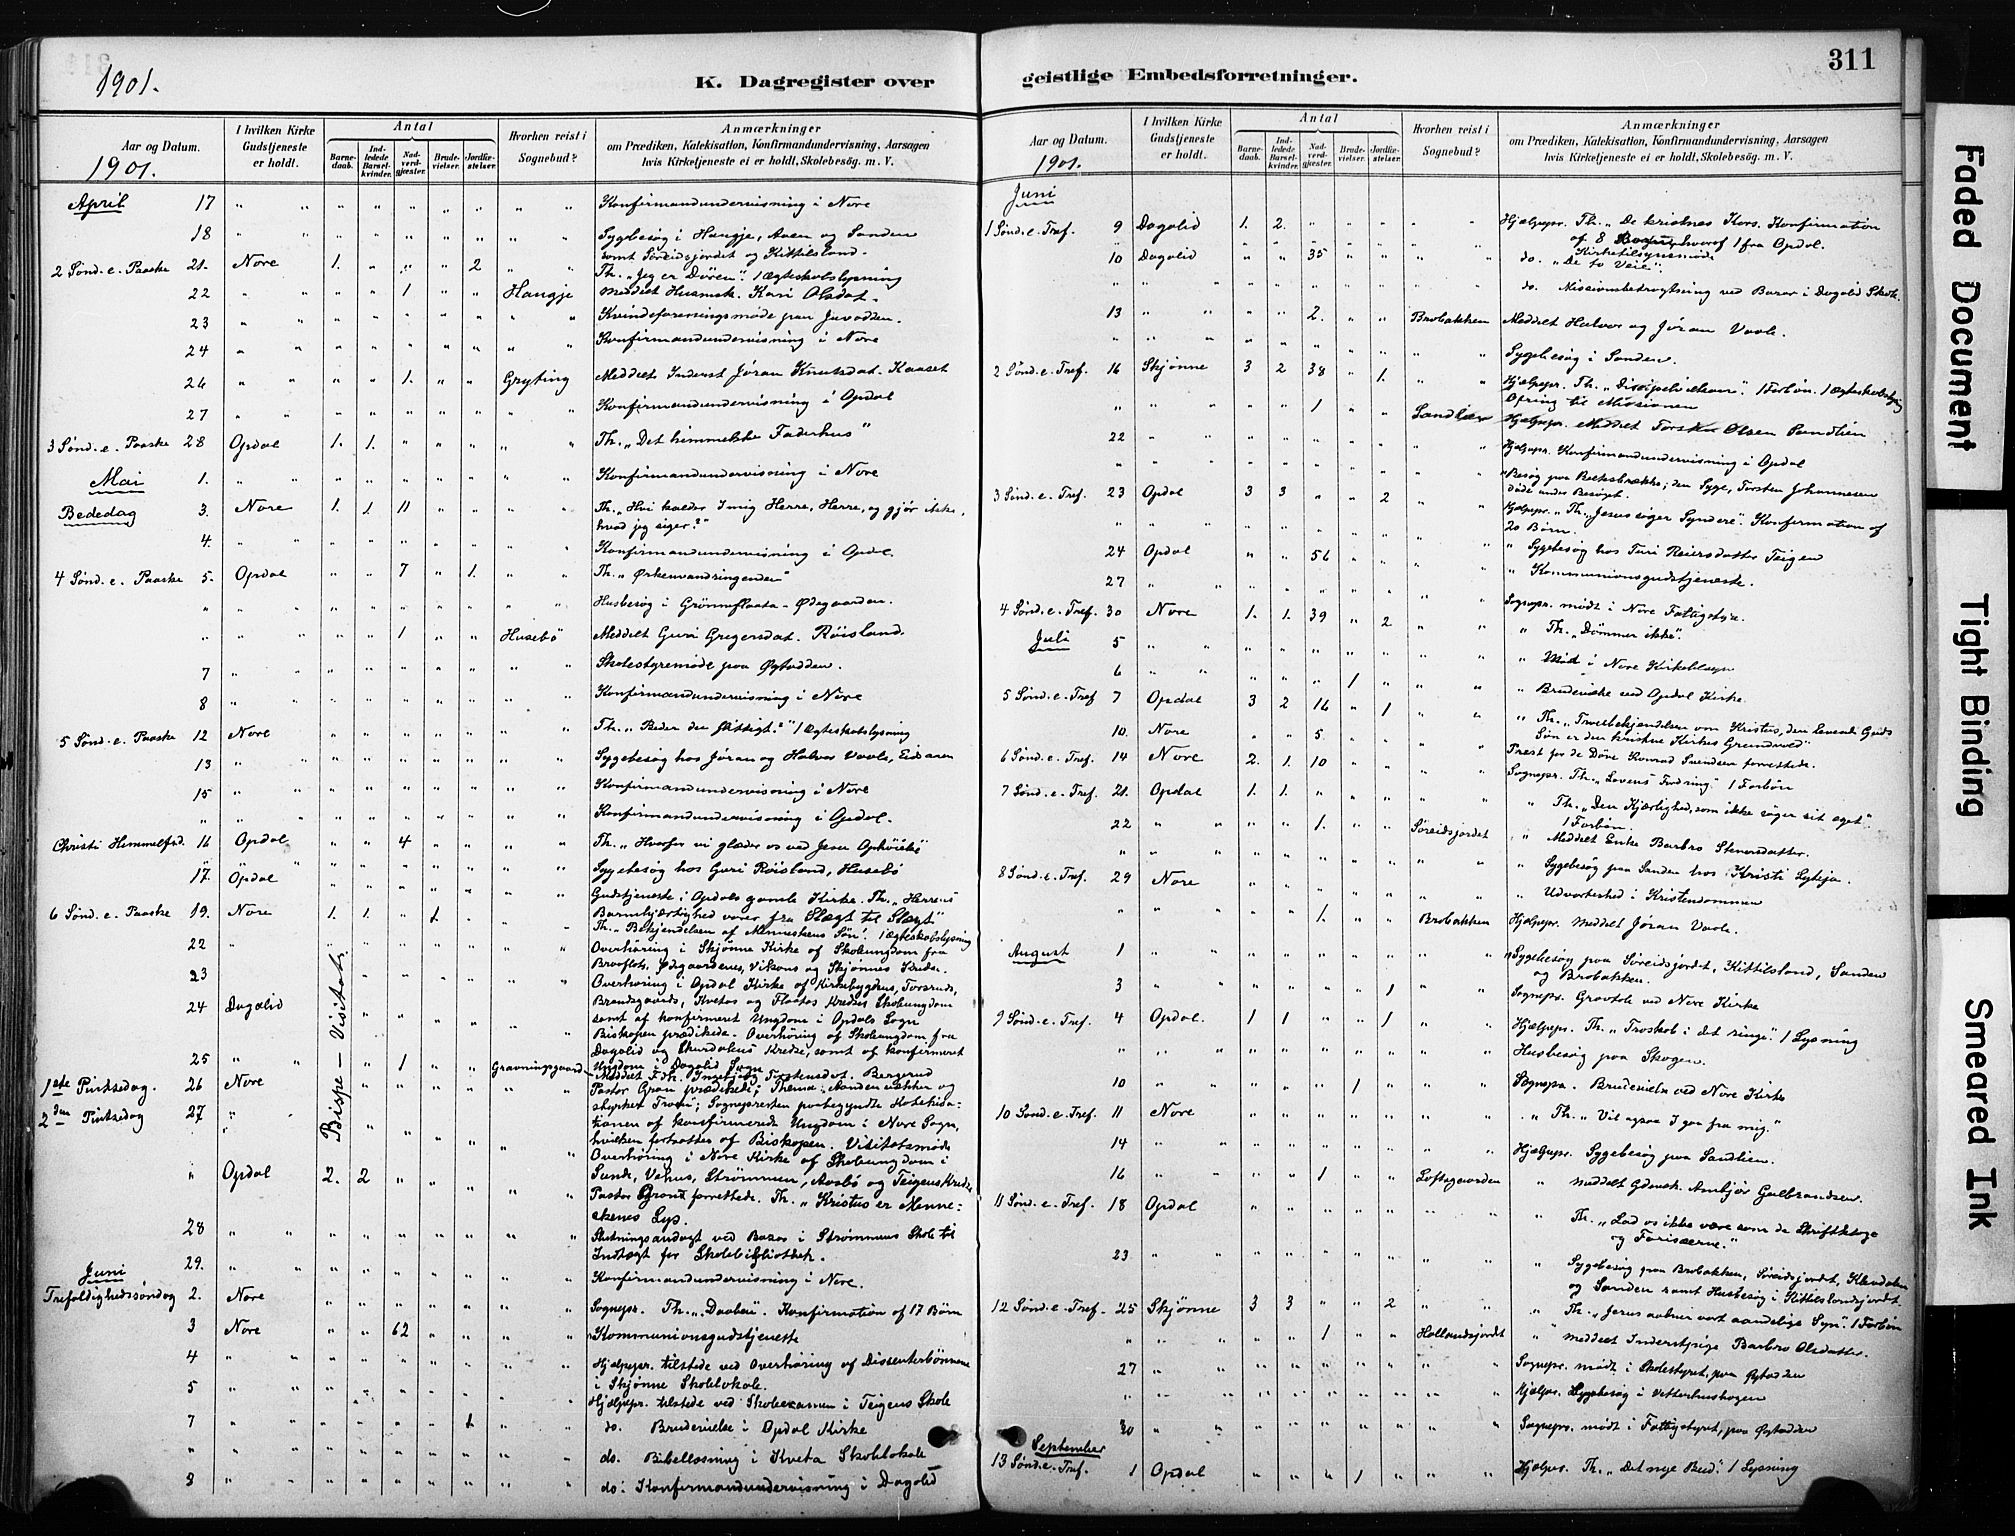 1901.
K. Dagregister over
Aar og Datum.
1901.
I hvilken Kirke Gudstjeneste er holdt.
Antal
Barnedaab.
Indledede Barselkvinder.
Nadverdgjæster.
Brudevielser.
Jordfæstelser.
Hvorhen reist i Sognebud?
Anmærkninger
om Prædiken, Katekisation, Konfirmandundervisning, Aarsagen
hvis Kirketjeneste ei er holdt, Skolebesøg. m. V.
April 17 Konfirmandundervisning i Nore
18 Sygebesøg i Haugje, Aasen og Sanden
samt Søreidsjordet og Kittilsland.
2 Sønd. e. Paaske 21. Nore 1. 2 Th. „Jeg er Døren“. 1 Ægteskabslysning
22 1 Haugje Meddelt Husmsk. Kari Olsdat.
23 Kvindeforeningsmøde paa Juvodden.
24 Konfirmandundervisning i Nore
26 1. Gryting Meddelt Inderst Jøran Knutsdat. Kaaset
27 Konfirmandundervisning i Opdal
3 Sønd. e. Paaske 28 Opdal 1. 1. Th. „Det himmelske Faderhus“
Mai 1. Konfirmandundervisning i Nore
Bededag 3. Nore 1. 1. 11 Th. „Hvi kalder I mig Herre, Herre, og gjør ikke,
hvad jeg siger?“
4. Konfirmandundervisning i Opdal.
4 Sønd. e. Paaske 5. Opdal 7 1. Th. „Ørkenvandringenden“
Husbesøg i Grønneflaata - Ødegaarden.
1 Husebø Meddelt Guri Gregersdat. Røisland.
7 Skolestyremøde paa Øytadden.
8 Konfirmandundervisning i Nore
5 Sønd. e. Paaske 12 Nore Th. „Beder du flittigt?“ 1 Ægteskabslysning
13 Sygebesøg hos Jøran og Halvor Vaale, Eidsaren
15 Konfirmandundervisning i Nore
Konfirmandundervisning i Opdal.
Christi Himmelfsd. 16 Opdal 4 Th. „Hvorfor vi glæder os ved Jesu Ophøielse
17. Opdal Sygebesøg hos Guri Røisland, Husebø
Gudstjeneste i Opdals gamle Kirke. Th. „Herrens
Barmhjertighed varer fra Slægt til Slægt“
6 Sønd. e. Paaske 19. Nore 1. 1. 1. Th. „Bekjendelsen af Menneskens Søn“. 1 Ægteskabslysning
Bispe - Visitats.
22 Overhøring i Skjønne Kirke af Skoleungdom fra
Braaflots, Ødegaardenes, Vikens og Skjønnes Kredse.
23 Overhøring i Opdal Kirke af Kirkebygdens, Torsruds,
Brandsgaards, Kvetas og Flaatas Kredses Skoleungdom
samt af konfirmeret Ungdom i Opdals Sogn
24 Dagalid Biskopen prædikede. Overhøring af Skoleungdom fra
Dagalid og Skurdalens Kredse, samt af konfirmeret
Ungdom i Dagalid Sogn.
25 1 Gravningsgaard Meddelt Fdr. Ingebjørg Torstensdat. Bergerud
1ste Pintsedag. 26 Nore Pastor Gran prædikede; Thema: Aanden vækker og
styrker Troen; Sognepresten paabegyndte Katekisa-
2den Pintsedag 27 tionen af konfirmerede Ungdom i Nore Sogn,
hvilken fortsattes af Biskopen. Visitatsmøde
Overhøring i Nore Kirke af Skoleungdom i
Opdal 2. 2 Sunde, Vehus, Strømmen, Aasbø og Teigens Kredse
Pastor Grand forrettede. Th. „Kristus er Menne-
skenes Lys.
28 Slutningsandagt ved Bazar i Strømmens Skole til
Indtægt for Skolebibliothek.
29. Konfirmandundervisning i Nore.
Juni
Trefoldighedssøndag 2. Nore Sognepr. Th. „Daaben“. Konfirmation af 17 Børn
3 Nore 62 Kommunionsgudstjeneste
4 Hjælpepr. tilstede ved Overhøring af Dissenterbørnene
i Skjønne Skolelokale.
5 Hjælpepr. tilstede ved Skoleexamen i Teigens Skole
7 1. do. Brudevielse i Opdal Kirke
do. Bibellæsning i Kveta Skolelokale
8 do: Konfirmandundervisning i Dagalid
geistlige Embedsforretninger.
311
Aar og Datum.
1901.
I hvilken Kirke Gudstjeneste er holdt.
Antal
Barnedaab.
Indledede Barselkvinder.
Nadverdgjæster.
Brudevielser.
Jordfæstelser.
Hvorhen reist i Sognebud?
Anmærkninger
om Prædiken, Katekisation, Konfirmandundervisning, Aarsagen
hvis Kirketjeneste ei er holdt, Skolebesøg. m. V.
Juni
1 Sønd. e. Tref. 9 Dagalid 1. 2. Hjælpepr. Th. „De kristnes Kors. Konfirmation
af 8 Børn, hvoraf 1 fra Opdal.
Kirketilsynsmøde
10 Dagalid 35 do. „De to Veie“.
do. Missionsbetragtning ved Bazar i Dagalid Skole.
13 2. Brobakken Meddelt Halvor og Jøran Vaale.
Sygebesøg i Sanden.
2 Sønd. e. Tref. 16 Skjønne 3 2 38 1. Hjælpepr. Th. „Discipelvielsen“. 1 Forbøn. 1 Ægteskabslysning
Ofring til Missionen
1 Sandlien Hjælpepr. Meddelt Torsten Olsen Sandlien
22 Hjælpepr. Konfirmandundervisning i Opdal
„ Besøg paa Bakkebrække; den Syge, Torsten Johannesen
døde under Besøget.
3 Sønd. e. Tref. 23 Opdal 3 3 2 Hjælpepr. „Th. „Jesus søger Syndere“. Konfirmation af
20 Børn.
„ Sygebesøg hos Turi Reiersdatter Teigen
24 Opdal 56 „ Kommunionsgudstjeneste.
27 Sognepr. mødt i Nore Fattigstyre.
4 Sønd. e. Tref. 30 Nore 1. 1. 39 2 „ Th. „Dømmer ikke“.
Juli 5 „ Mød i Nore Kirketilsyn
6 1 „ Brudevielse ved Opdal Kirke
5 Sønd. e. Tref 7 Opdal 3 2 16 1 „ Th. „Troesbekjendelsen om Kristus, den levende Guds
Søn er den kristne Kirkes Grundvold“
10. Nore 5. Prest for de Døve Konrad Svendsen forrettede.
6 Sønd. e. Tref. 14 Nore 2. 1. 10 Sognepr. Th. „Lovens Fordring“. 1 Forbøn
7 Sønd. e. Tref. 21. Opdal 1. 1. „ Th. „Den Kjærlighed, som ikke søger sit eget“.
1 Forbøn
22 1. Søreidsjordet „ Meddelt Enke Barbro Stenersdatter.
„ Sygebesøg paa Sanden hos Kristi Lykkja.
8 Sønd. e. Tref. 29 Nore „ Udvorteshed i Kristendommen
1. Brobakken Hjælpepr. meddelt Jøran Vaale.
August 1 „ Sygebesøg paa Søreidsjordet, Kittilsland, Sanden
og Brobakken.
3 1 Sognepr. Gravtale ved Nore Kirke
9 Sønd. e. Tref. 4 Opdal. 1 1 1 Hjælpepr. Th. „Troskab i det ringe“. 1 Lysning
Husbesøg paa Skogen.
10 1 Sognepr. Brudevielse ved Nore Kirke
10 Sønd. e. Tref. 11 Nore „ Th. „Vil ogsaa I gaa fra mig.“
14 Hjælpepr. Sygebesøg paa Sandlien.
16 1 Loftsgaarden „ meddelt Gdmsk. Ambjør Gulbrandsen.
11 Sønd. e. Tref. 18 Opdal „ Th. „Lad os ikke være som de Skriftkloge
og Fariseerne.“
23 „ Sygebesøg paa Brobakken, Søreidsjordet, Klevdalen
og Sanden samt Husbesøg i Kittilslandsjordet
12 Sønd. e. Tref. 25 Skjønne 3 3 2 „ Th. „Jesus aabner vort aandelige Syn“. 1 Forbøn
1 Hollandsjordt „ meddelt Indersthjige Barbro Olsdatter.
27 Sognepr. mødt i Skolestyret, paa Øytadden
Hjælpr. Sygebesøg i Vetterhushagen
30 Sognepr. mødt i Fattigstyret, paa Øytadden
September
13 Sønd. e. Tref. 1 Opdal 1 Hjælpr. Th. „Det nye Bud“. 1 Lysning
Faded Document
Tight Binding
Smeared Ink